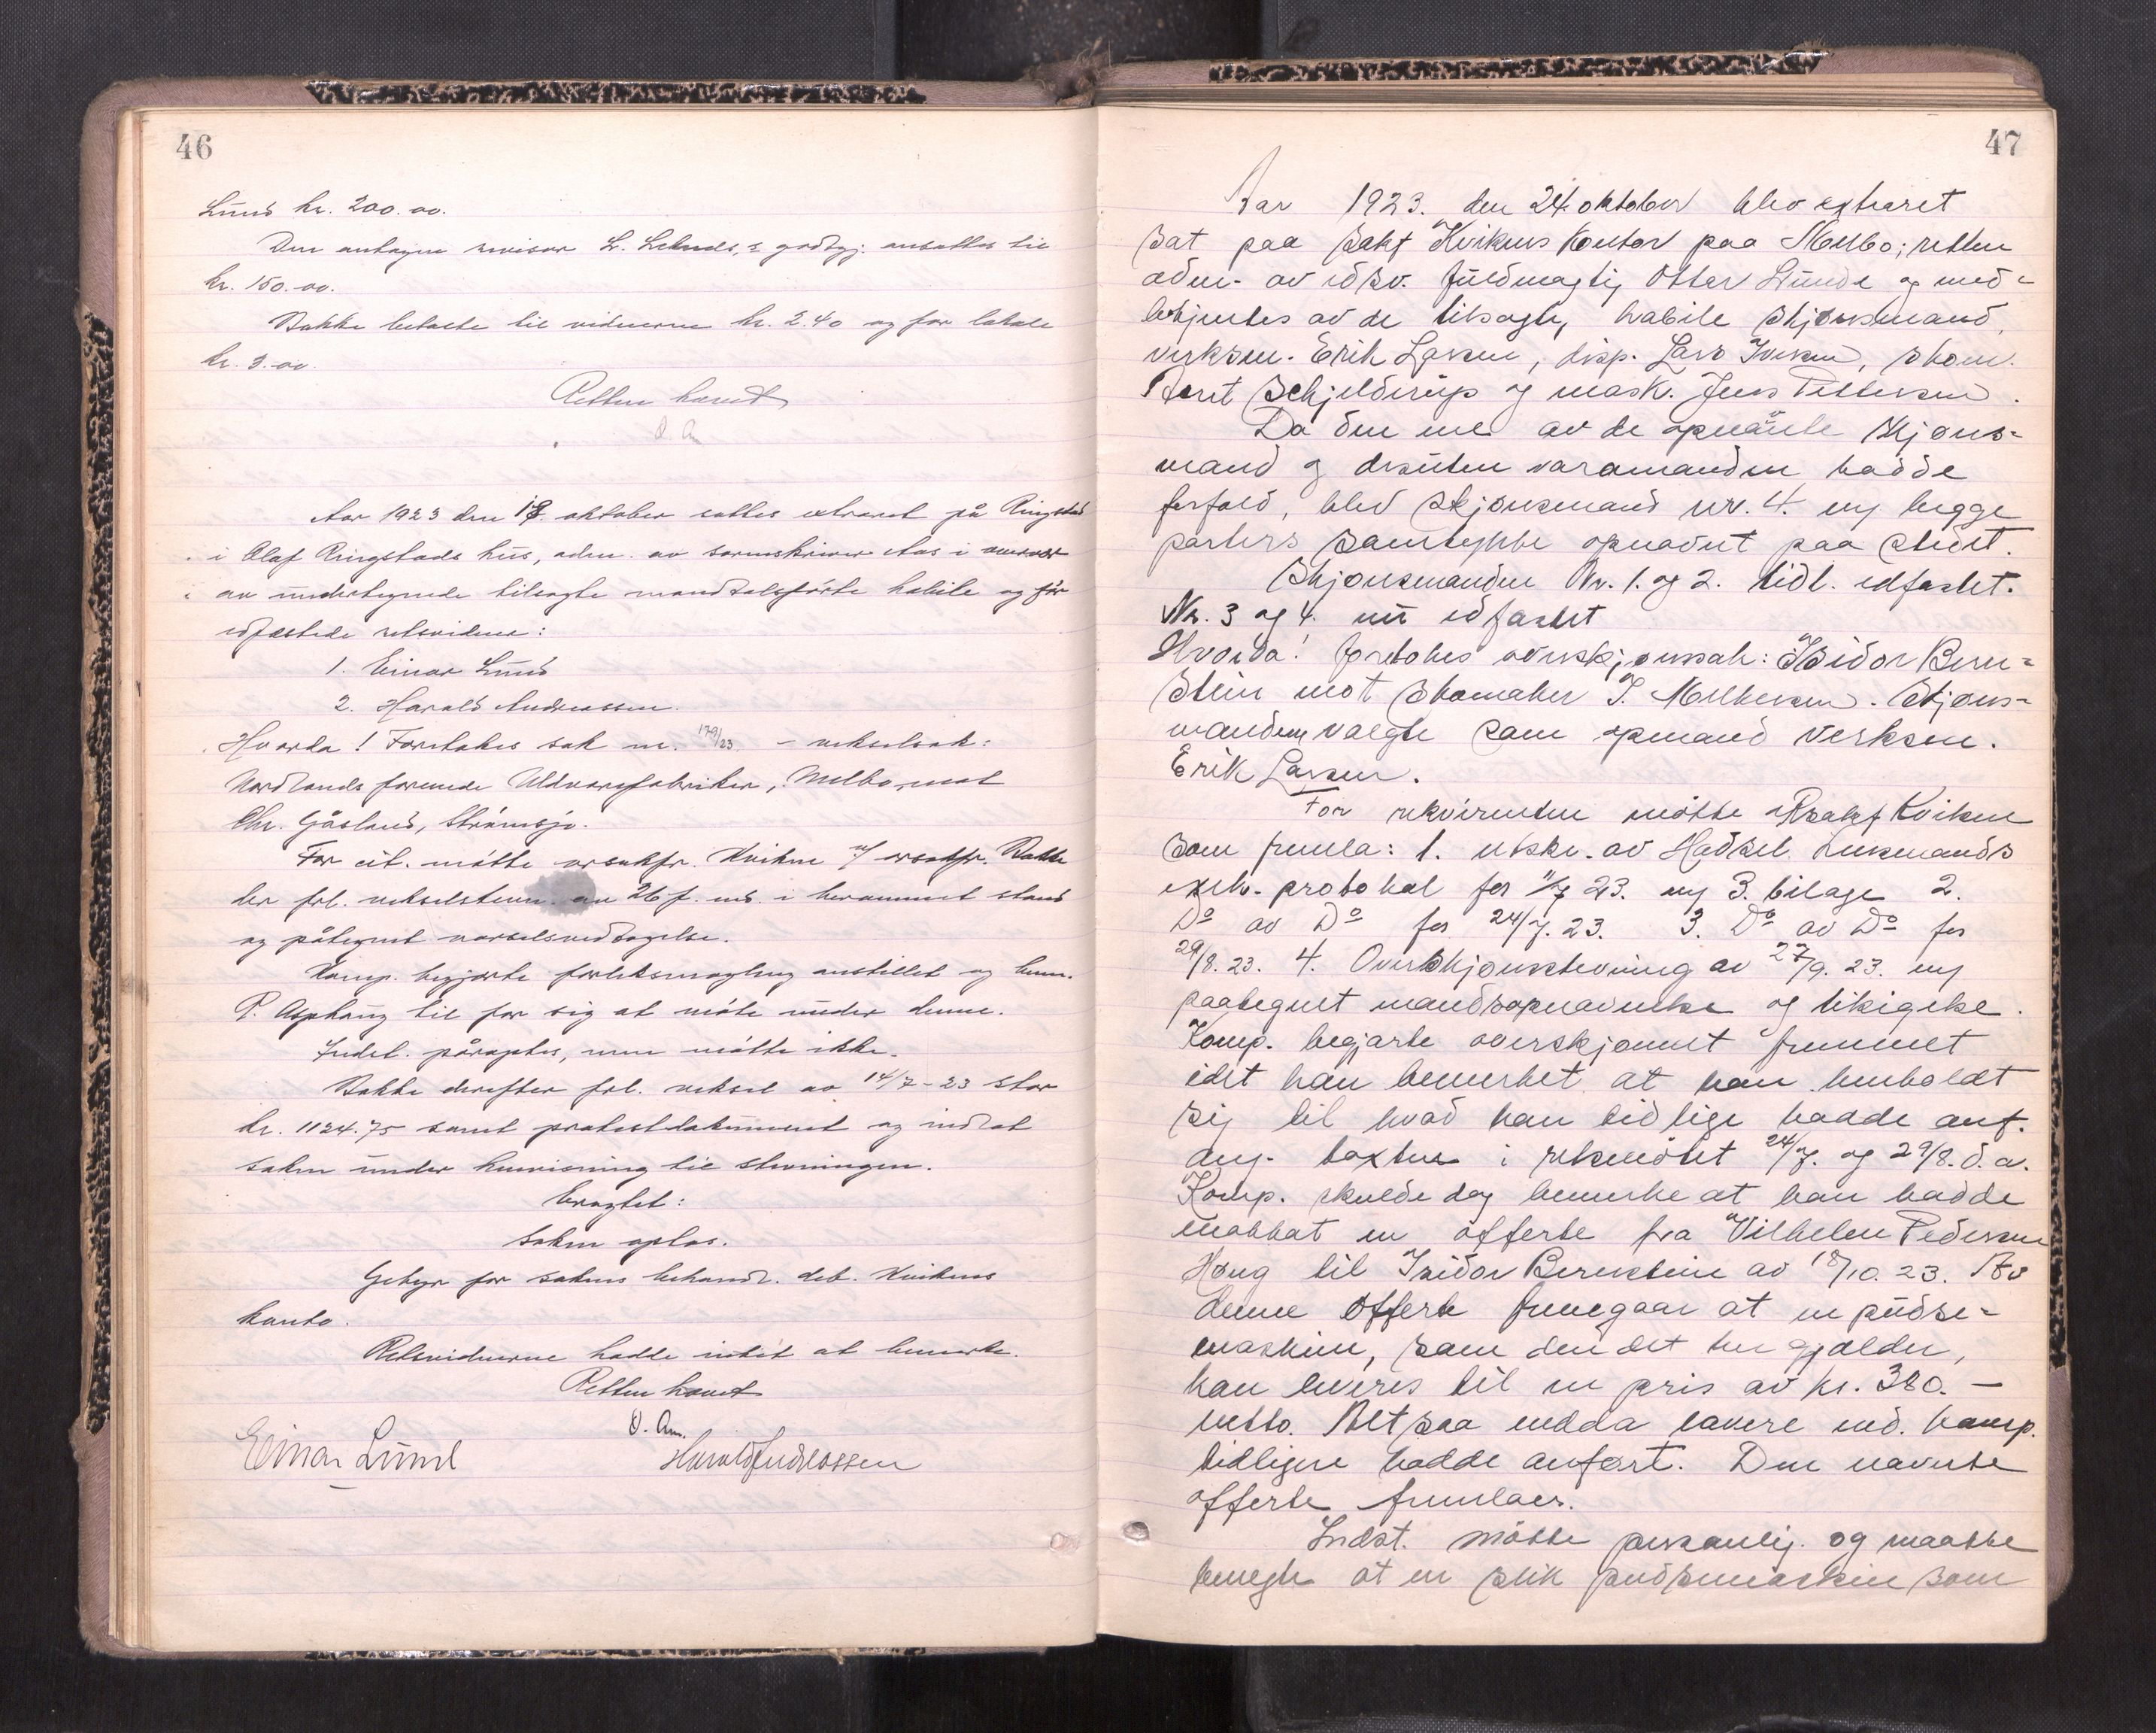 46
Lund kr. 200.00.
Den antagne revisor L. godtgj. ansattes til
kr. 150.00.
Bakke betalte til vidnerne kr. 2.40 og for lokale
kr. 3.00.
Retten hævet
O. Aas
Aar 1923 den 18. oktober sattes extraret på Ringstad
i Olaf Ringstads hus, adm. av sorenskriver Aas i overvær
av undertegnede tilsagte mandtalsførte habile og før
edfæstede retsvidner:
1. Einar Lund
2. Harald Andreassen.
Hvorda! Foretokes sak nr. 179/23 - vekselsak:
Nordlands forenede Uldvarefabriker, Melbo, mot
Chr. Gåsland, Strømsjø.
For cit. møtte orsakfr. Kvikne v/ orsakfr. Bakke
der frl. vekselstevn. av 26 f. md. i berammet stand
og påtegnet varselsvedtagelse.
Komp. begjærte forliksmægling anstillet og hem.
P. Asphaug til for sig at møte under denne.
Indst. påroptes, men møtte ikke.
Bakke derefter frl. veksel av 14/7-23 stor
kr. 1124.75 samt protestdokument og indlot
saken under henvisning til stevningen.
Eragtet:
Saken optas.
Gebyr for sakens behandl. deb. Kviknes
konto.
Retsvidnerne hadde intet at bemerke.
Retten hævet
O. Aas.
Einar Lund Harald Andreassen
47
Aar 1923. den 24. oktober blev extraret
sat paa sakf Kviknes kontor paa Melbo; retten
adm. av edsv. fuldmægtig Ottar Lunde og med-
betjentes av de tilsagte, habile skjønsmænd,
verksm. Erik Larsen, disp. Lars Iversen, skom.
Beret Schjelderup og mask. Jens Pettersen.
Da den ene av de opnævnte skjøns-
mænd og desuten varamanden hadde
forfald, blev skjønsmand nr. 4. mg begge
parters samtykke opnævnt paa stedet.
Skjønsmænden Nr. 1. og 2. tidl. edfæstet.
Nr. 3 og 4. nu edfæstet
Hvorda! foretokes overskjønssak: Isidor Bern-
stein mot skomaker I. Mikkelsen. Skjøns-
mændene valgte som opmand verksm.
Erik Larsen.
For rekvirenten møtte orsakf Kvikne
som freml: 1. utskr. av Hadsel lensmands
exek. protokol for 11/7 23. mg 3. bilage 2.
Do av Do for 24/7. 23. 3. Do av Do for
29/8. 23. 4. Overskjønsstevning av 27/9. 23. mg
paategnet mandsopnævnelse og
Komp. begjærte overskjønnet fremmet
idet han bemerket at han henholdt
sig til hvad han tidligere hadde anf.
ang. taxten i retsmøtet 24/7. og 29/8. d.a.
Komp. skulde dog bemerke at han hadde
mottat en offerte fra Vilhelm Pedersen
Haug til Isidor Bernstein av 18/10. 23. Av
denne offerte fremgaar at en pudse-
maskine, som den det her gjælder,
kan leveres til en pris av kr. 380.-
netto. Altsaa endda lavere end. komp.
tidligere hadde anført. Den nævnte
offerte fremlaes.
Indst. møtte personlig. og maatte
benegte at en slik pudsemaskine som